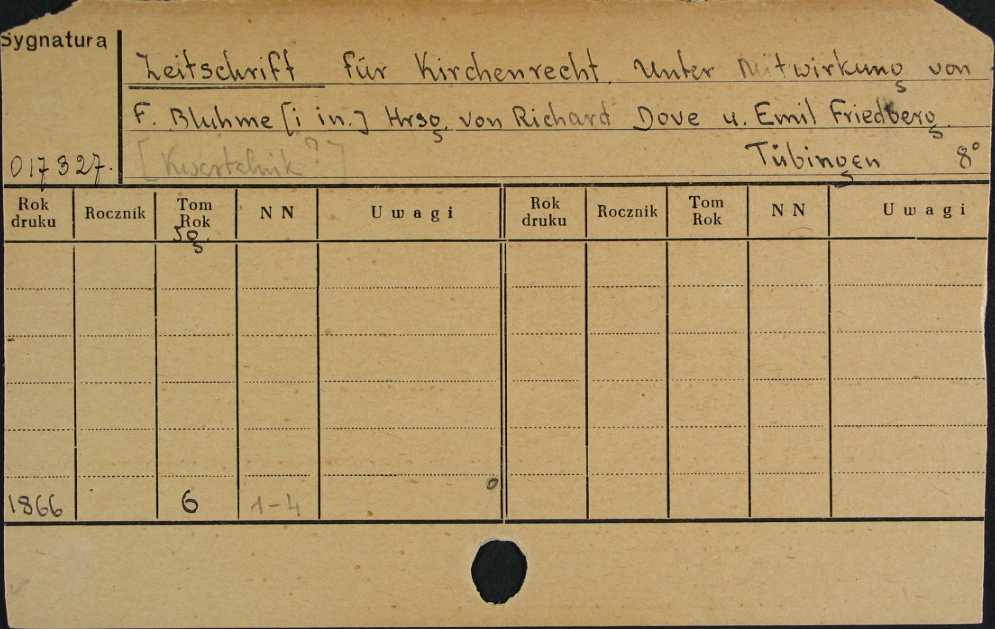 Sygnatura
Zeitschrift für Kirchenrecht. Unter Mitwirkung von
F. Bluhme [i in.] Hrsg. von Richard Dove u. Emil Friedberg.
017327. [Kwartalnik?] Tübingen 8°
Rok druku Rocznik Tom Rok NN Uwagi Rok druku Rocznik Tom Rok NN Uwagi
1866 6 1-4